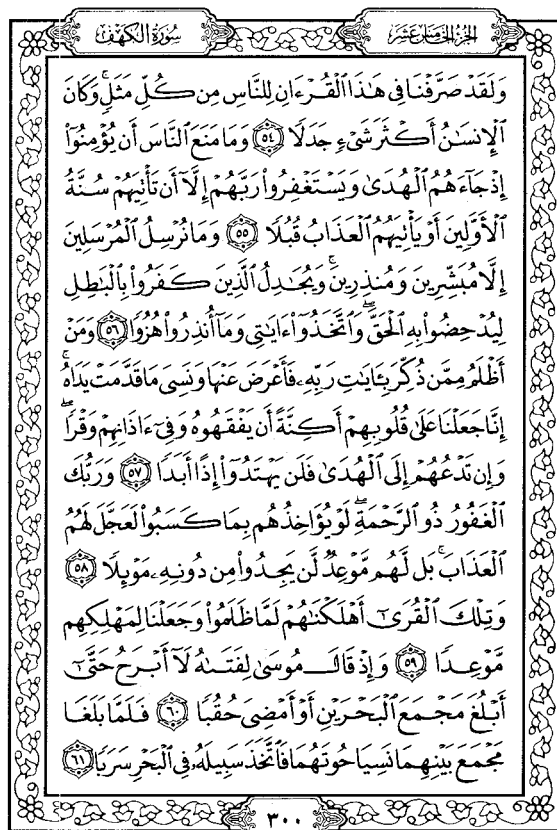 سُورَةُ الكَهْفِ
الجُزْءُ الخَامِسَ عَشَرَ
وَلَقَدْ صَرَّفْنَا فِى هَٰذَا ٱلْقُرْءَانِ لِلنَّاسِ مِن كُلِّ مَثَلٍۚ وَكَانَ
ٱلْإِنسَٰنُ أَكْثَرَ شَىْءٍ جَدَلًا ٥٤ وَمَا مَنَعَ ٱلنَّاسَ أَن يُؤْمِنُوٓا۟
إِذْ جَآءَهُمُ ٱلْهُدَىٰ وَيَسْتَغْفِرُوا۟ رَبَّهُمْ إِلَّآ أَن تَأْتِيَهُمْ سُنَّةُ
ٱلْأَوَّلِينَ أَوْ يَأْتِيَهُمُ ٱلْعَذَابُ قُبُلًا ٥٥ وَمَا نُرْسِلُ ٱلْمُرْسَلِينَ
إِلَّا مُبَشِّرِينَ وَمُنذِرِينَۚ وَيُجَٰدِلُ ٱلَّذِينَ كَفَرُوا۟ بِٱلْبَٰطِلِ
لِيُدْحِضُوا۟ بِهِ ٱلْحَقَّۖ وَٱتَّخَذُوٓا۟ ءَايَٰتِى وَمَآ أُنذِرُوا۟ هُزُوًا ٥٦ وَمَنْ
أَظْلَمُ مِمَّن ذُكِّرَ بِـَٔايَٰتِ رَبِّهِۦ فَأَعْرَضَ عَنْهَا وَنَسِىَ مَا قَدَّمَتْ يَدَاهُۚ
إِنَّا جَعَلْنَا عَلَىٰ قُلُوبِهِمْ أَكِنَّةً أَن يَفْقَهُوهُ وَفِىٓ ءَاذَانِهِمْ وَقْرًاۖ
وَإِن تَدْعُهُمْ إِلَى ٱلْهُدَىٰ فَلَن يَهْتَدُوٓا۟ إِذًا أَبَدًا ٥٧ وَرَبُّكَ
ٱلْغَفُورُ ذُو ٱلرَّحْمَةِۖ لَوْ يُؤَاخِذُهُم بِمَا كَسَبُوا۟ لَعَجَّلَ لَهُمُ
ٱلْعَذَابَۚ بَل لَّهُم مَّوْعِدٌ لَّن يَجِدُوا۟ مِن دُونِهِۦ مَوْئِلًا ٥٨
وَتِلْكَ ٱلْقُرَىٰٓ أَهْلَكْنَٰهُمْ لَمَّا ظَلَمُوا۟ وَجَعَلْنَا لِمَهْلِكِهِم
مَّوْعِدًا ٥٩ وَإِذْ قَالَ مُوسَىٰ لِفَتَىٰهُ لَآ أَبْرَحُ حَتَّىٰٓ
أَبْلُغَ مَجْمَعَ ٱلْبَحْرَيْنِ أَوْ أَمْضِىَ حُقُبًا ٦٠ فَلَمَّا بَلَغَا
مَجْمَعَ بَيْنِهِمَا نَسِيَا حُوتَهُمَا فَٱتَّخَذَ سَبِيلَهُۥ فِى ٱلْبَحْرِ سَرَبًا ٦١
٣٠٠